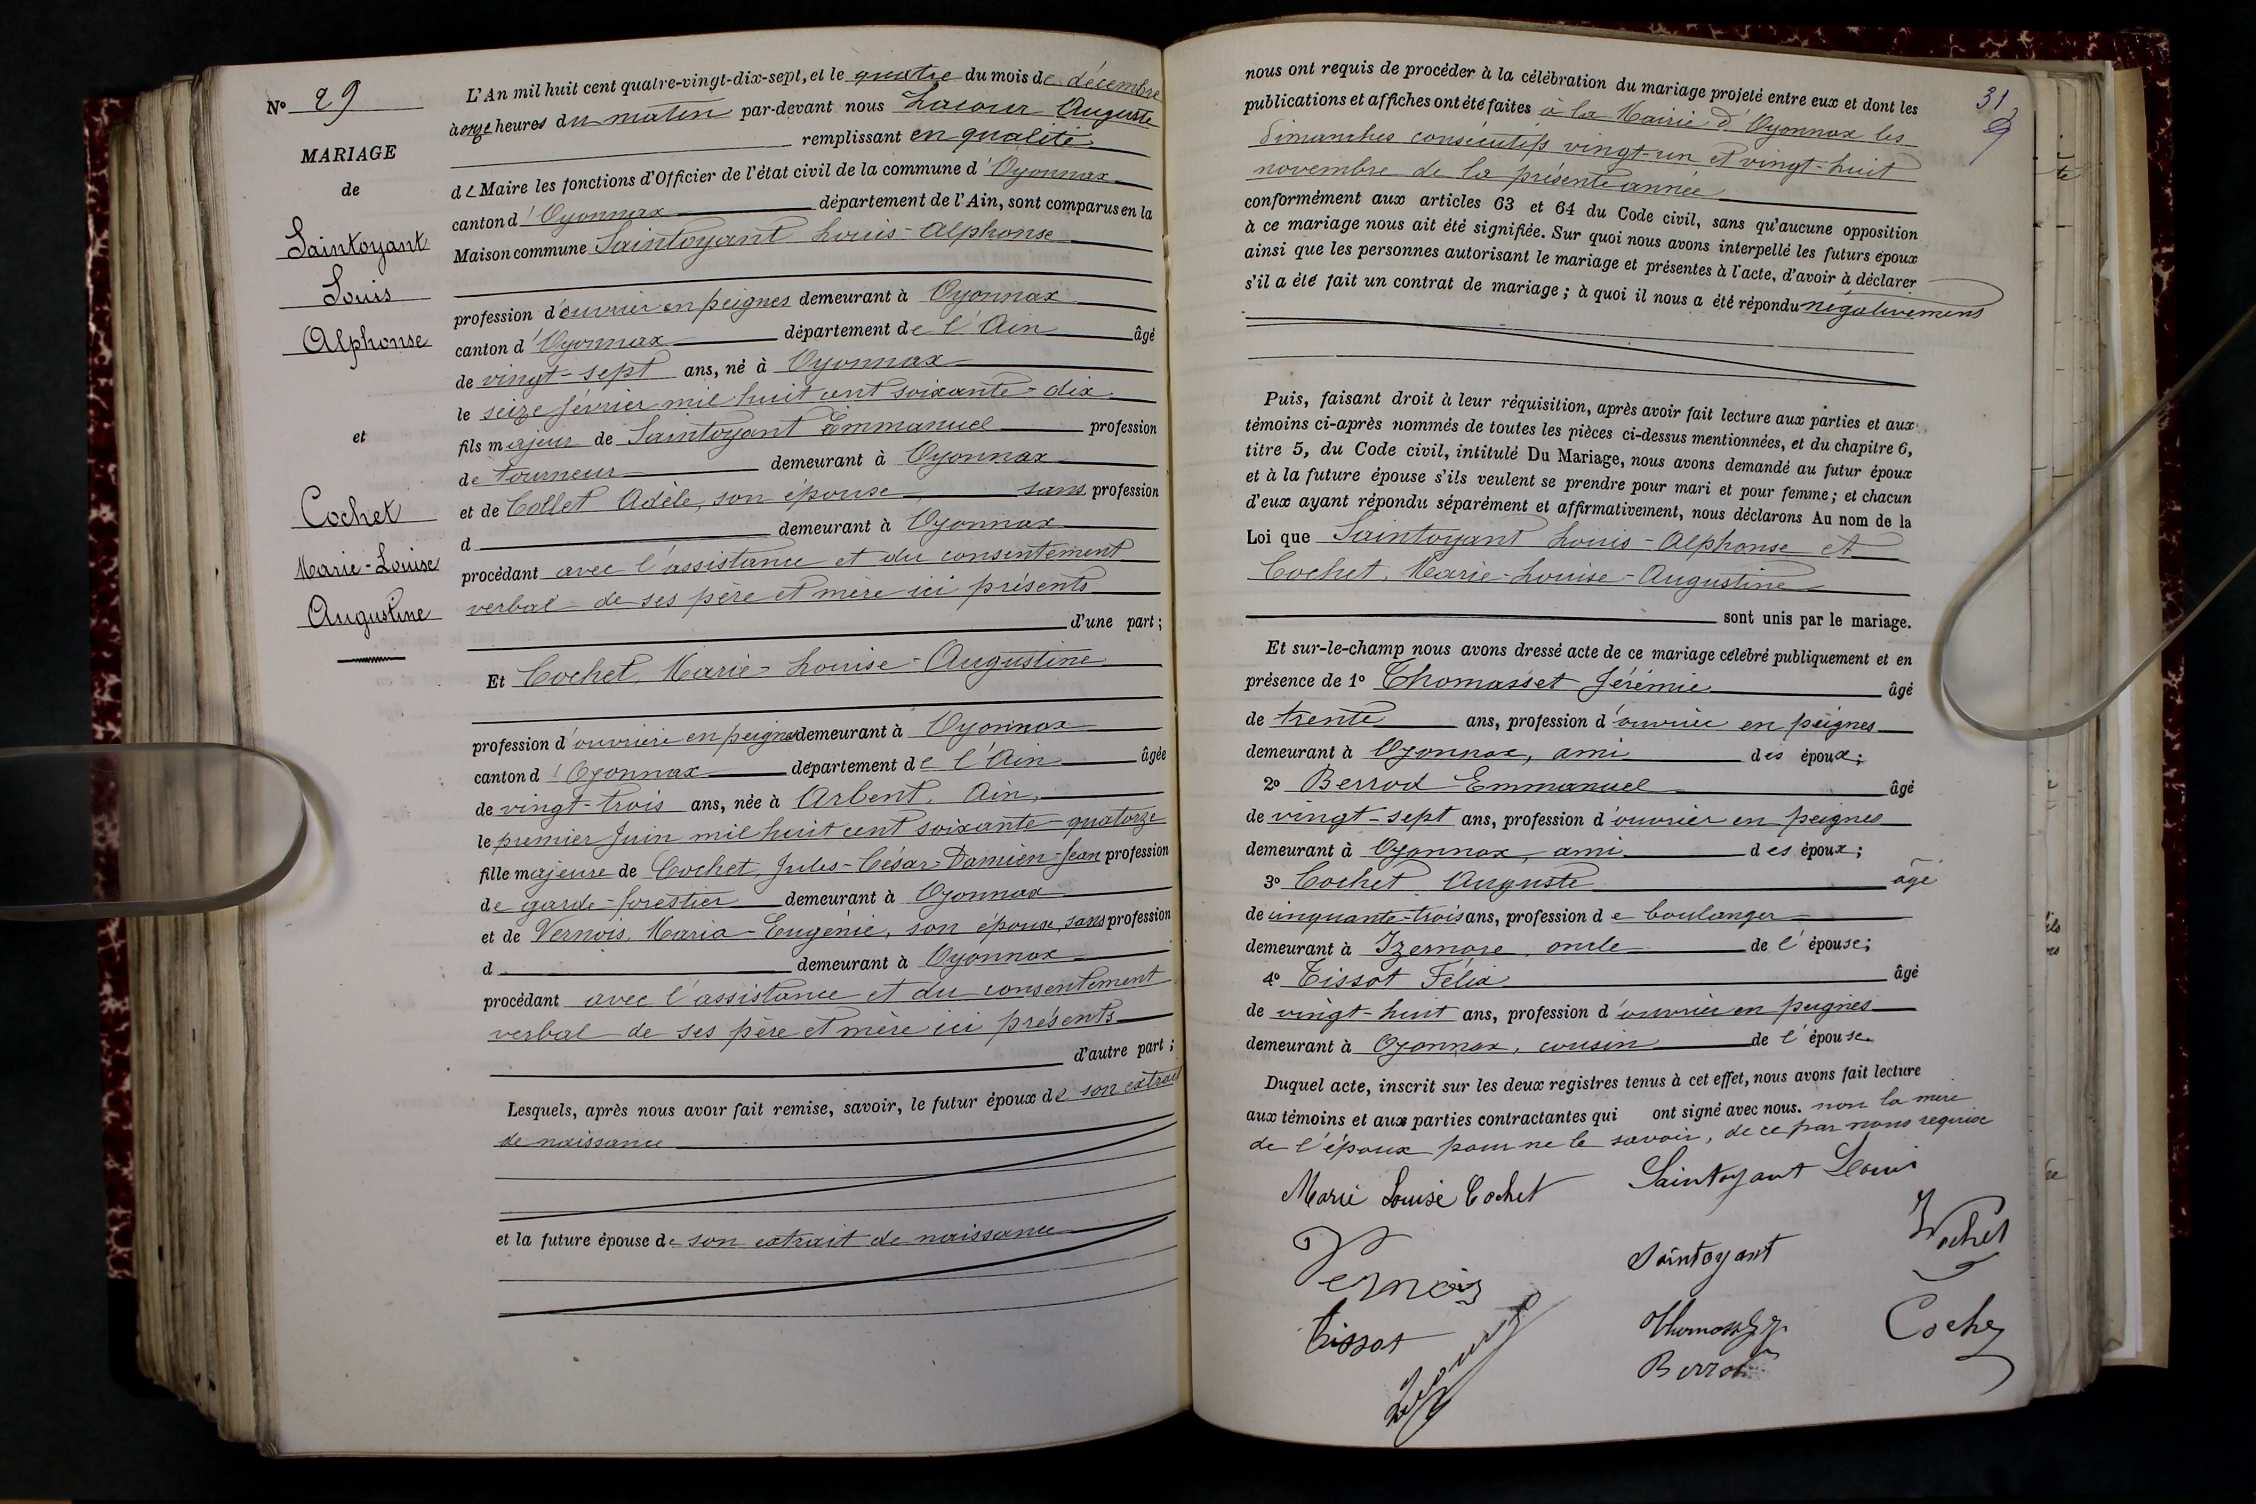 N° 29
MARIAGE
de
Saintoyant
Louis
Alphonse
et
Cochet
Marie-Louise
Augustine
L'An mil huit cent quatre-vingt-dix-sept, et le quatre du mois de décembre
à onze heures du matin par-devant nous Lacour Auguste
remplissant en qualité
de Maire les fonctions d'Officier de l'état civil de la commune d'Oyonnax
canton d'Oyonnax département de l'Ain, sont comparus en la
Maison commune Saintoyant Louis-Alphonse
profession d'ouvrier en peignes demeurant à Oyonnax
canton d'Oyonnax département de l'Ain âgé
de vingt-sept ans, né à Oyonnax
le seize février mil huit cent soixante-dix
fils majeur de Saintoyant Emmanuel profession
de tourneur demeurant à Oyonnax
et de Collet Adèle, son épouse sans profession
d demeurant à Oyonnax
procédant avec l'assistance et du consentement
verbal de ses père et mère ici présents
d'une part;
Et Cochet Marie-Louise-Augustine
profession d'ouvrière en peignes demeurant à Oyonnax
canton d'Oyonnax département de l'Ain âgée
de vingt-trois ans, née à Arbent, Ain,
le premier Juin mil huit cent soixante-quatorze
fille majeure de Cochet, Jules-César-Damien-Jean profession
de garde-forestier demeurant à Oyonnax
et de Vernois, Maria-Eugénie, son épouse, sans profession
d demeurant à Oyonnax
procédant avec l'assistance et du consentement
verbal de ses père et mère ici présents
d'autre part;
Lesquels, après nous avoir fait remise, savoir, le futur époux de son extrait
de naissance
et la future épouse de son extrait de naissance
31
nous ont requis de procéder à la célébration du mariage projeté entre eux et dont les
publications et affiches ont été faites à la Mairie d'Oyonnax les
dimanches consécutifs vingt-un et vingt-huit
novembre de la présente année
conformément aux articles 63 et 64 du Code civil, sans qu'aucune opposition
à ce mariage nous ait été signifiée. Sur quoi nous avons interpellé les futurs époux
ainsi que les personnes autorisant le mariage et présentes à l'acte, d'avoir à déclarer
s'il a été fait un contrat de mariage; à quoi il nous a été répondu négativement
Puis, faisant droit à leur réquisition, après avoir fait lecture aux parties et aux
témoins ci-après nommés de toutes les pièces ci-dessus mentionnées, et du chapitre 6,
titre 5, du Code civil, intitulé Du Mariage, nous avons demandé au futur époux
et à la future épouse s'ils veulent se prendre pour mari et pour femme; et chacun
d'eux ayant répondu séparément et affirmativement, nous déclarons Au nom de la
Loi que Saintoyant Louis-Alphonse et
Cochet, Marie-Louise-Augustine
sont unis par le mariage.
Et sur-le-champ nous avons dressé acte de ce mariage célébré publiquement et en
présence de 1° Thomasset Jérémie âgé
de trente ans, profession d'ouvrier en peignes
demeurant à Oyonnax, ami des époux;
2° Berrod Emmanuel âgé
de vingt-sept ans, profession d'ouvrier en peignes
demeurant à Oyonnax, ami des époux;
3° Cochet Auguste âgé
de cinquante-trois ans, profession de boulanger
demeurant à Izernore, oncle de l'épouse;
4° Tissot Félix âgé
de vingt-huit ans, profession d'ouvrier en peignes
demeurant à Oyonnax, cousin de l'épouse.
Duquel acte, inscrit sur les deux registres tenus à cet effet, nous avons fait lecture
aux témoins et aux parties contractantes qui ont signé avec nous. non la mère
de l'époux pour ne le savoir, de ce par nous requise
Marie Louise Cochet Saintoyant Louis
Vernois Saintoyant Cochet
Tissot Thomasset Cochet
Berrod